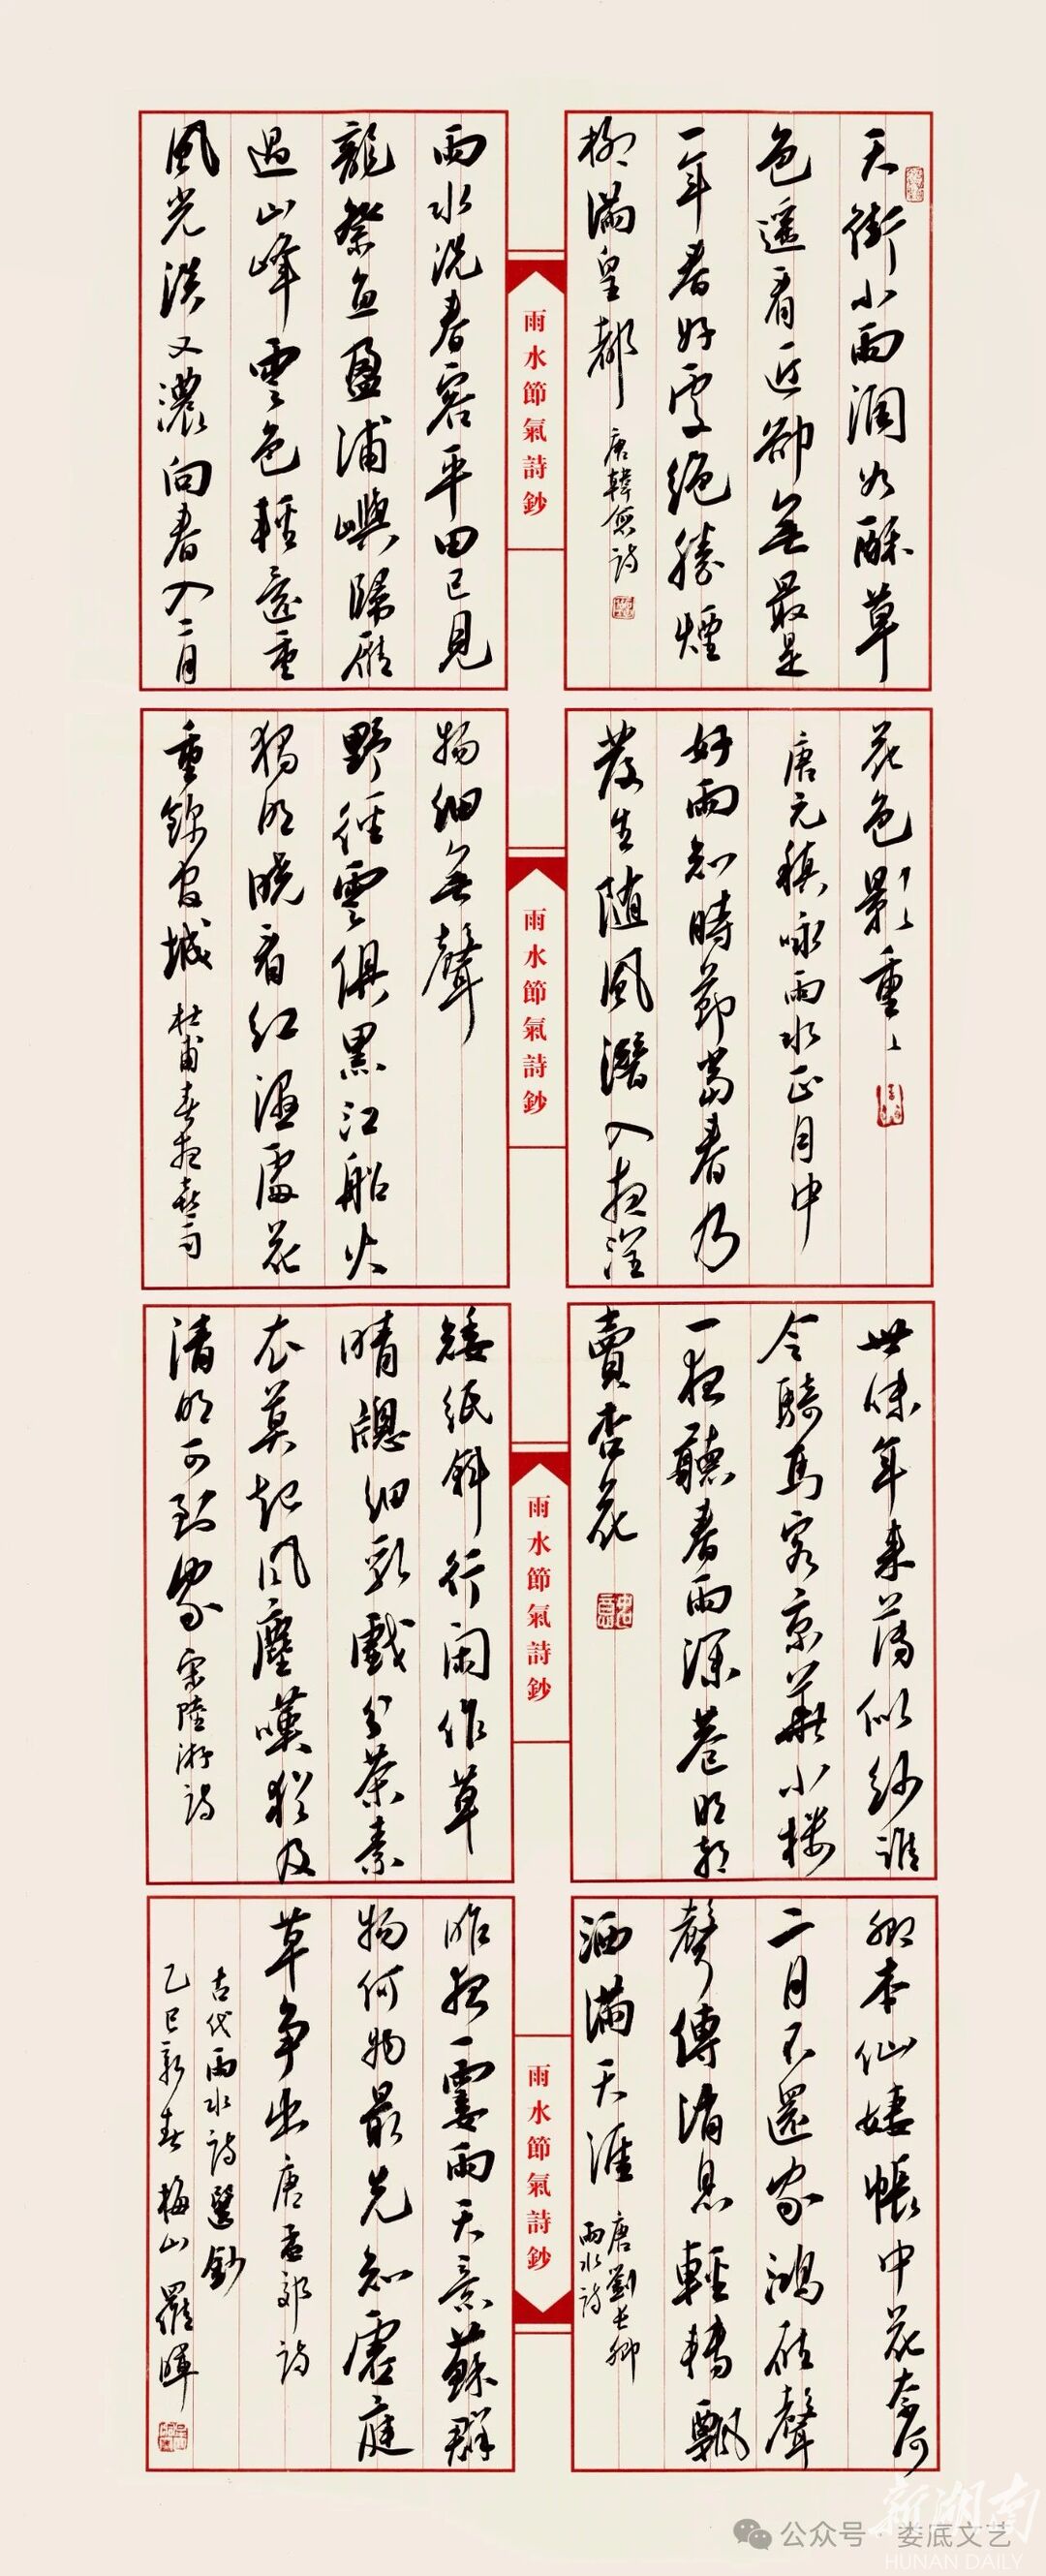 天街小雨潤如酥草
色遥看近卻無最是
一年春好處絕勝煙
柳滿皇都
唐韓愈詩
雨水節氣詩鈔
雨水洗春容平田已見
龍祭魚盈浦嶼歸雁
過山峰雲色輕還重
風光淡又濃向春入二月
花色影重〻
唐元稹咏雨水正月中
好雨知時節當春乃
發生随風潛入夜潤
雨水節氣詩鈔
物細無聲
野徑雲俱黑江船火
獨明曉看紅濕處花
重錦官城
杜甫春夜喜雨
世味年來薄似紗誰
令騎馬客京華小樓
一夜聽春雨深巷明朝
賣杏花
雨水節氣詩鈔
矮紙斜行闲作草
晴窗细乳戲分茶素
衣莫起风塵嘆猶及
清明可到家
宋陸游詩
卿本仙
帳中花奈何
二月不還家鴻雁聲
聲傳消息輕轉飄
洒滿天涯
唐劉長卿
雨水詩
雨水節氣詩鈔
昨夜一霎雨天意蘇群
物何物最先知虛庭
草争出
唐孟郊詩
古代雨水詩選鈔
乙巳新春 梅山 羅暉
公众号·娄底文艺
新湖南
HUNAN DAILY